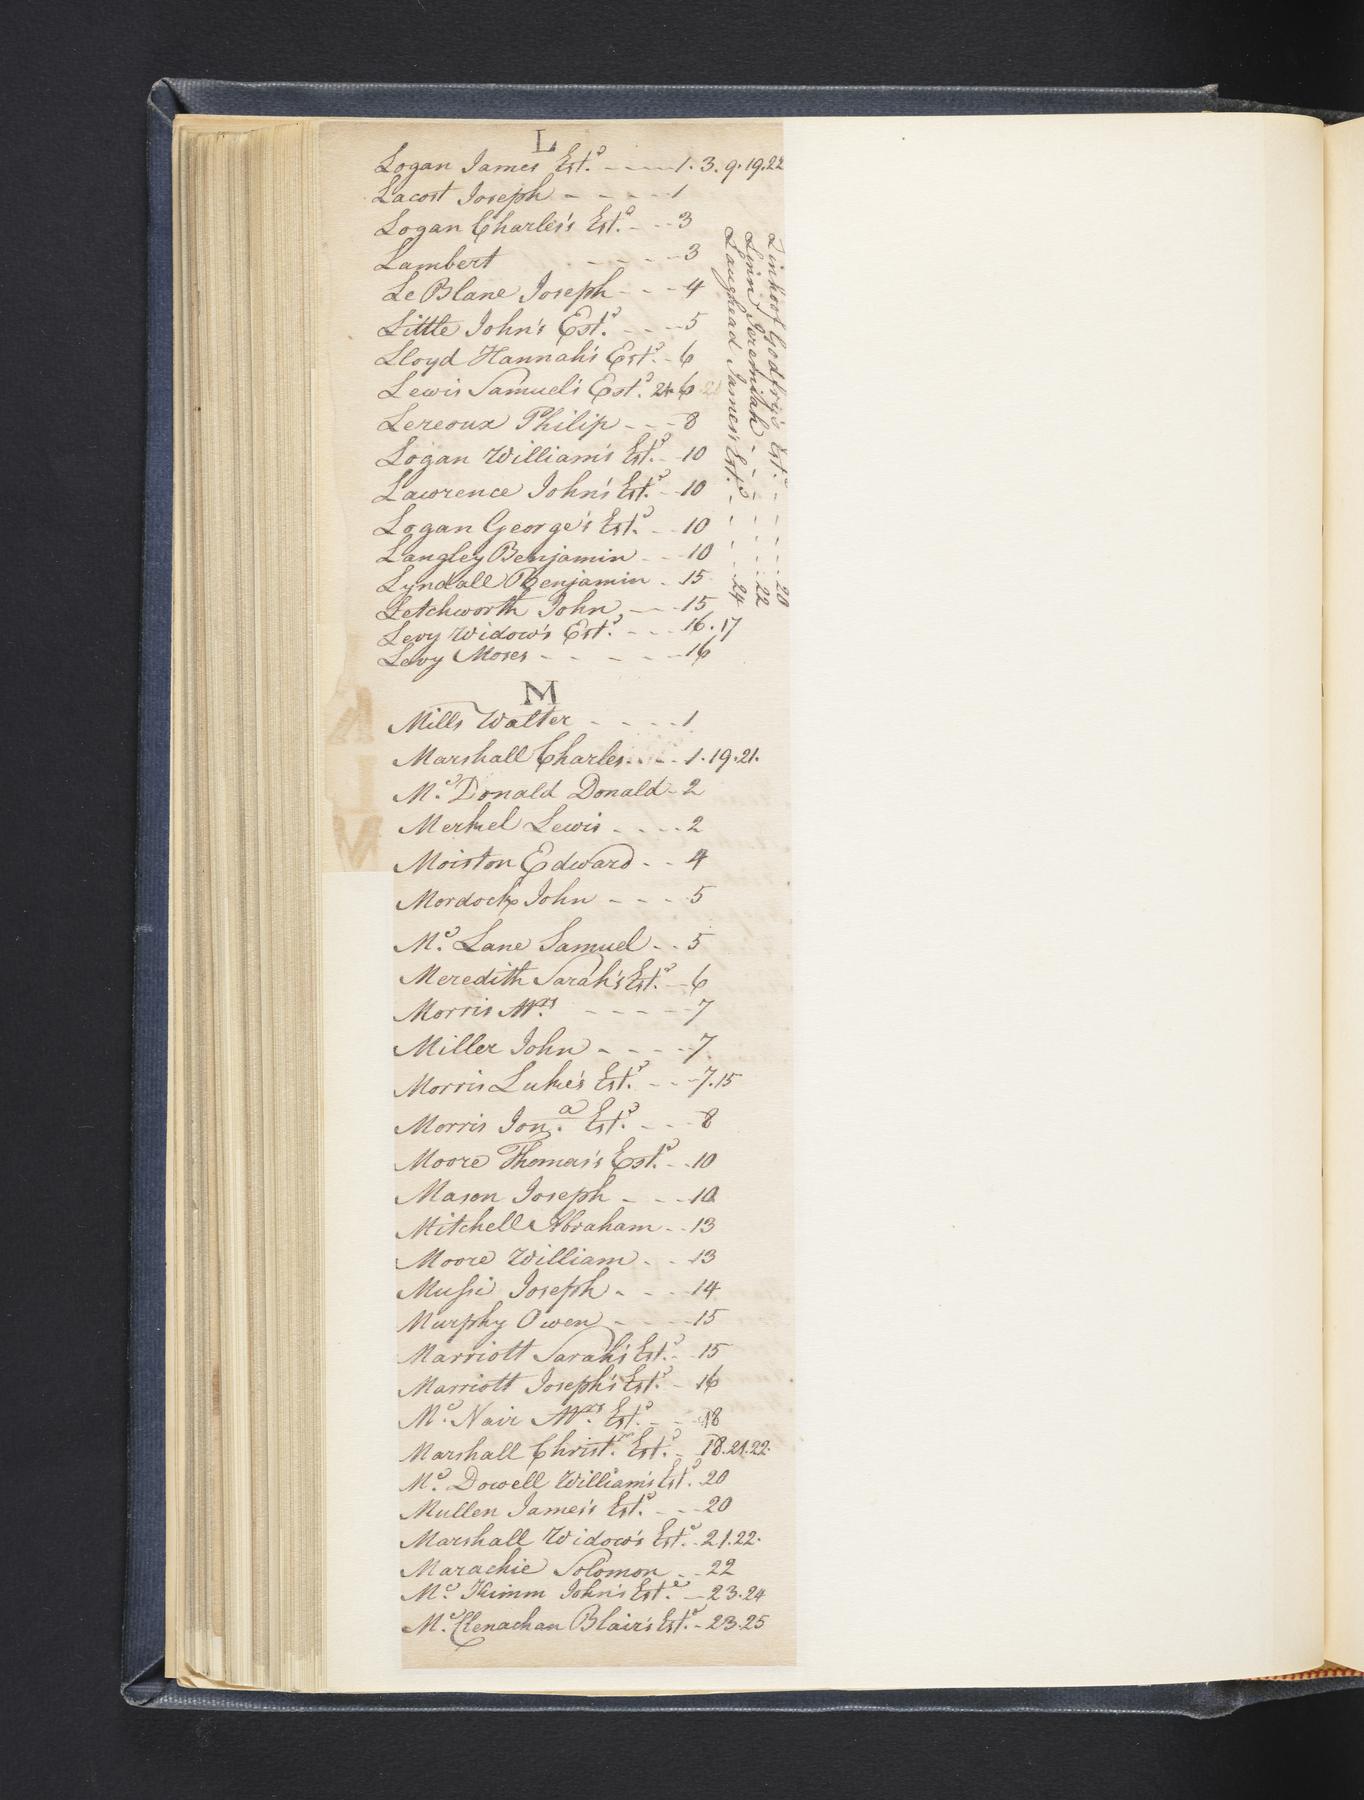 L
Logan James Est.e - - - 1. 3. 9. 19. 22
Lacost Joseph - - - - - 1
Logan Charles's Est.e - - - 3
Lambert - - - - - 3
Le Blane Joseph - - - 4
Little John's Est.e - - - - 5
Lloyd Hannah's Est.e - 6
Lewis Samuel's Est.e 24 6
Lereoux Philip - - - 8
Logan William's Est.e - 10
Lawrence John's Est.e - 10
Logan George's Est.e - - 10
Langley Benjamin - - - 10
Lyndall Benjamin - 15
Letchworth John - - - 15
Levy Widow's Est.e - - - 16. 17
Levy Moses - - - - - 16
Laughead James's Est.e - - - - 24
Linn Jeremiah - - - - - 22
Linkoot Godfry's Est.e - - - - 20
M
Mills Walter - - - - 1
Marshall Charles - - - 1. 19. 21.
M.c Donald Donald - 2
Merkel Lewis - - - - 2
Moiston Edward - - 4
Mordock John - - - - 5
M.c Lane Samuel - - 5
Meredith Sarah's Est.e - 6
Morris Mrs - - - - - 7
Miller John - - - - 7
Morris Luke's Est.e - - - 7. 15
Morris Jon.a Est.e - - - 8
Moore Thomas's Est.e - - 10
Mason Joseph - - - - 10
Mitchell Abraham - - 13
Moore William - - - 13
Mussi Joseph - - - - 14
Murphy Owen - - - - 15
Marriott Sarah's Est.e - 15
Marriott Joseph's Est.e - 16
M.c Nair Mrs Est.e - - 18
Marshall Christ.r Est.e - 18. 21. 22.
M.c Dowell William's Est.e 20
Mullen James's Est.e - - - 20
Marshall Widow's Est.e - 21. 22.
Marachie Solomon - - - 22
M.c Kimm John's Est.e - 23. 24
M.c Clenachan Blair's Est.e - 23. 25